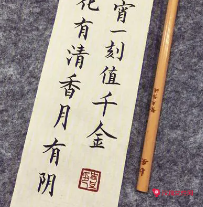 宵一刻值千金
花有清香月有阴